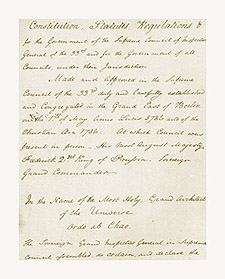 Constitution, Statutes, Regulations &
for the Government of the Supreme Council of Inspector
General of the 33rd and for the Government of all
Councils, under their Jurisdiction
Made and Approved in the Supreme
Council of the 33rd duly and Lawfully established
and Congregated in the Grand East of Berlin
on the 1st of May Anno Lucis 5786 and of the
Christian Era 1786. At which Council was
present in person - His most august Majesty,
Frederick 2nd King of Prussia, Sovereign
Grand Commander
In the Name of the Most Holy, Grand Architect
of the Universe
Ordo ab Chao.
The Sovereign Grand Inspectors General in Supreme
Council assembled, do ordain, and declare the